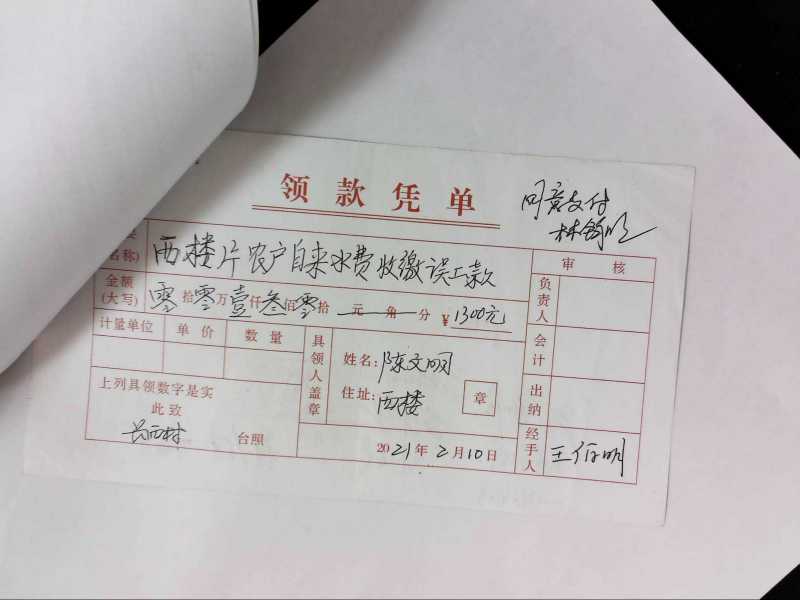 领款凭单
同意支付
林
名称)
西楼片农户自来水费收缴误工款
审核
金额
(大写)
零拾零万壹仟叁佰零拾元角分 ¥1300元
负责人
计量单位 单价 数量
会计
具领人盖章
姓名:陈文明
住址:西楼
章
出纳
上列具领数字是实
此致
西村 台照
2021年2月10日
经手人
王何明